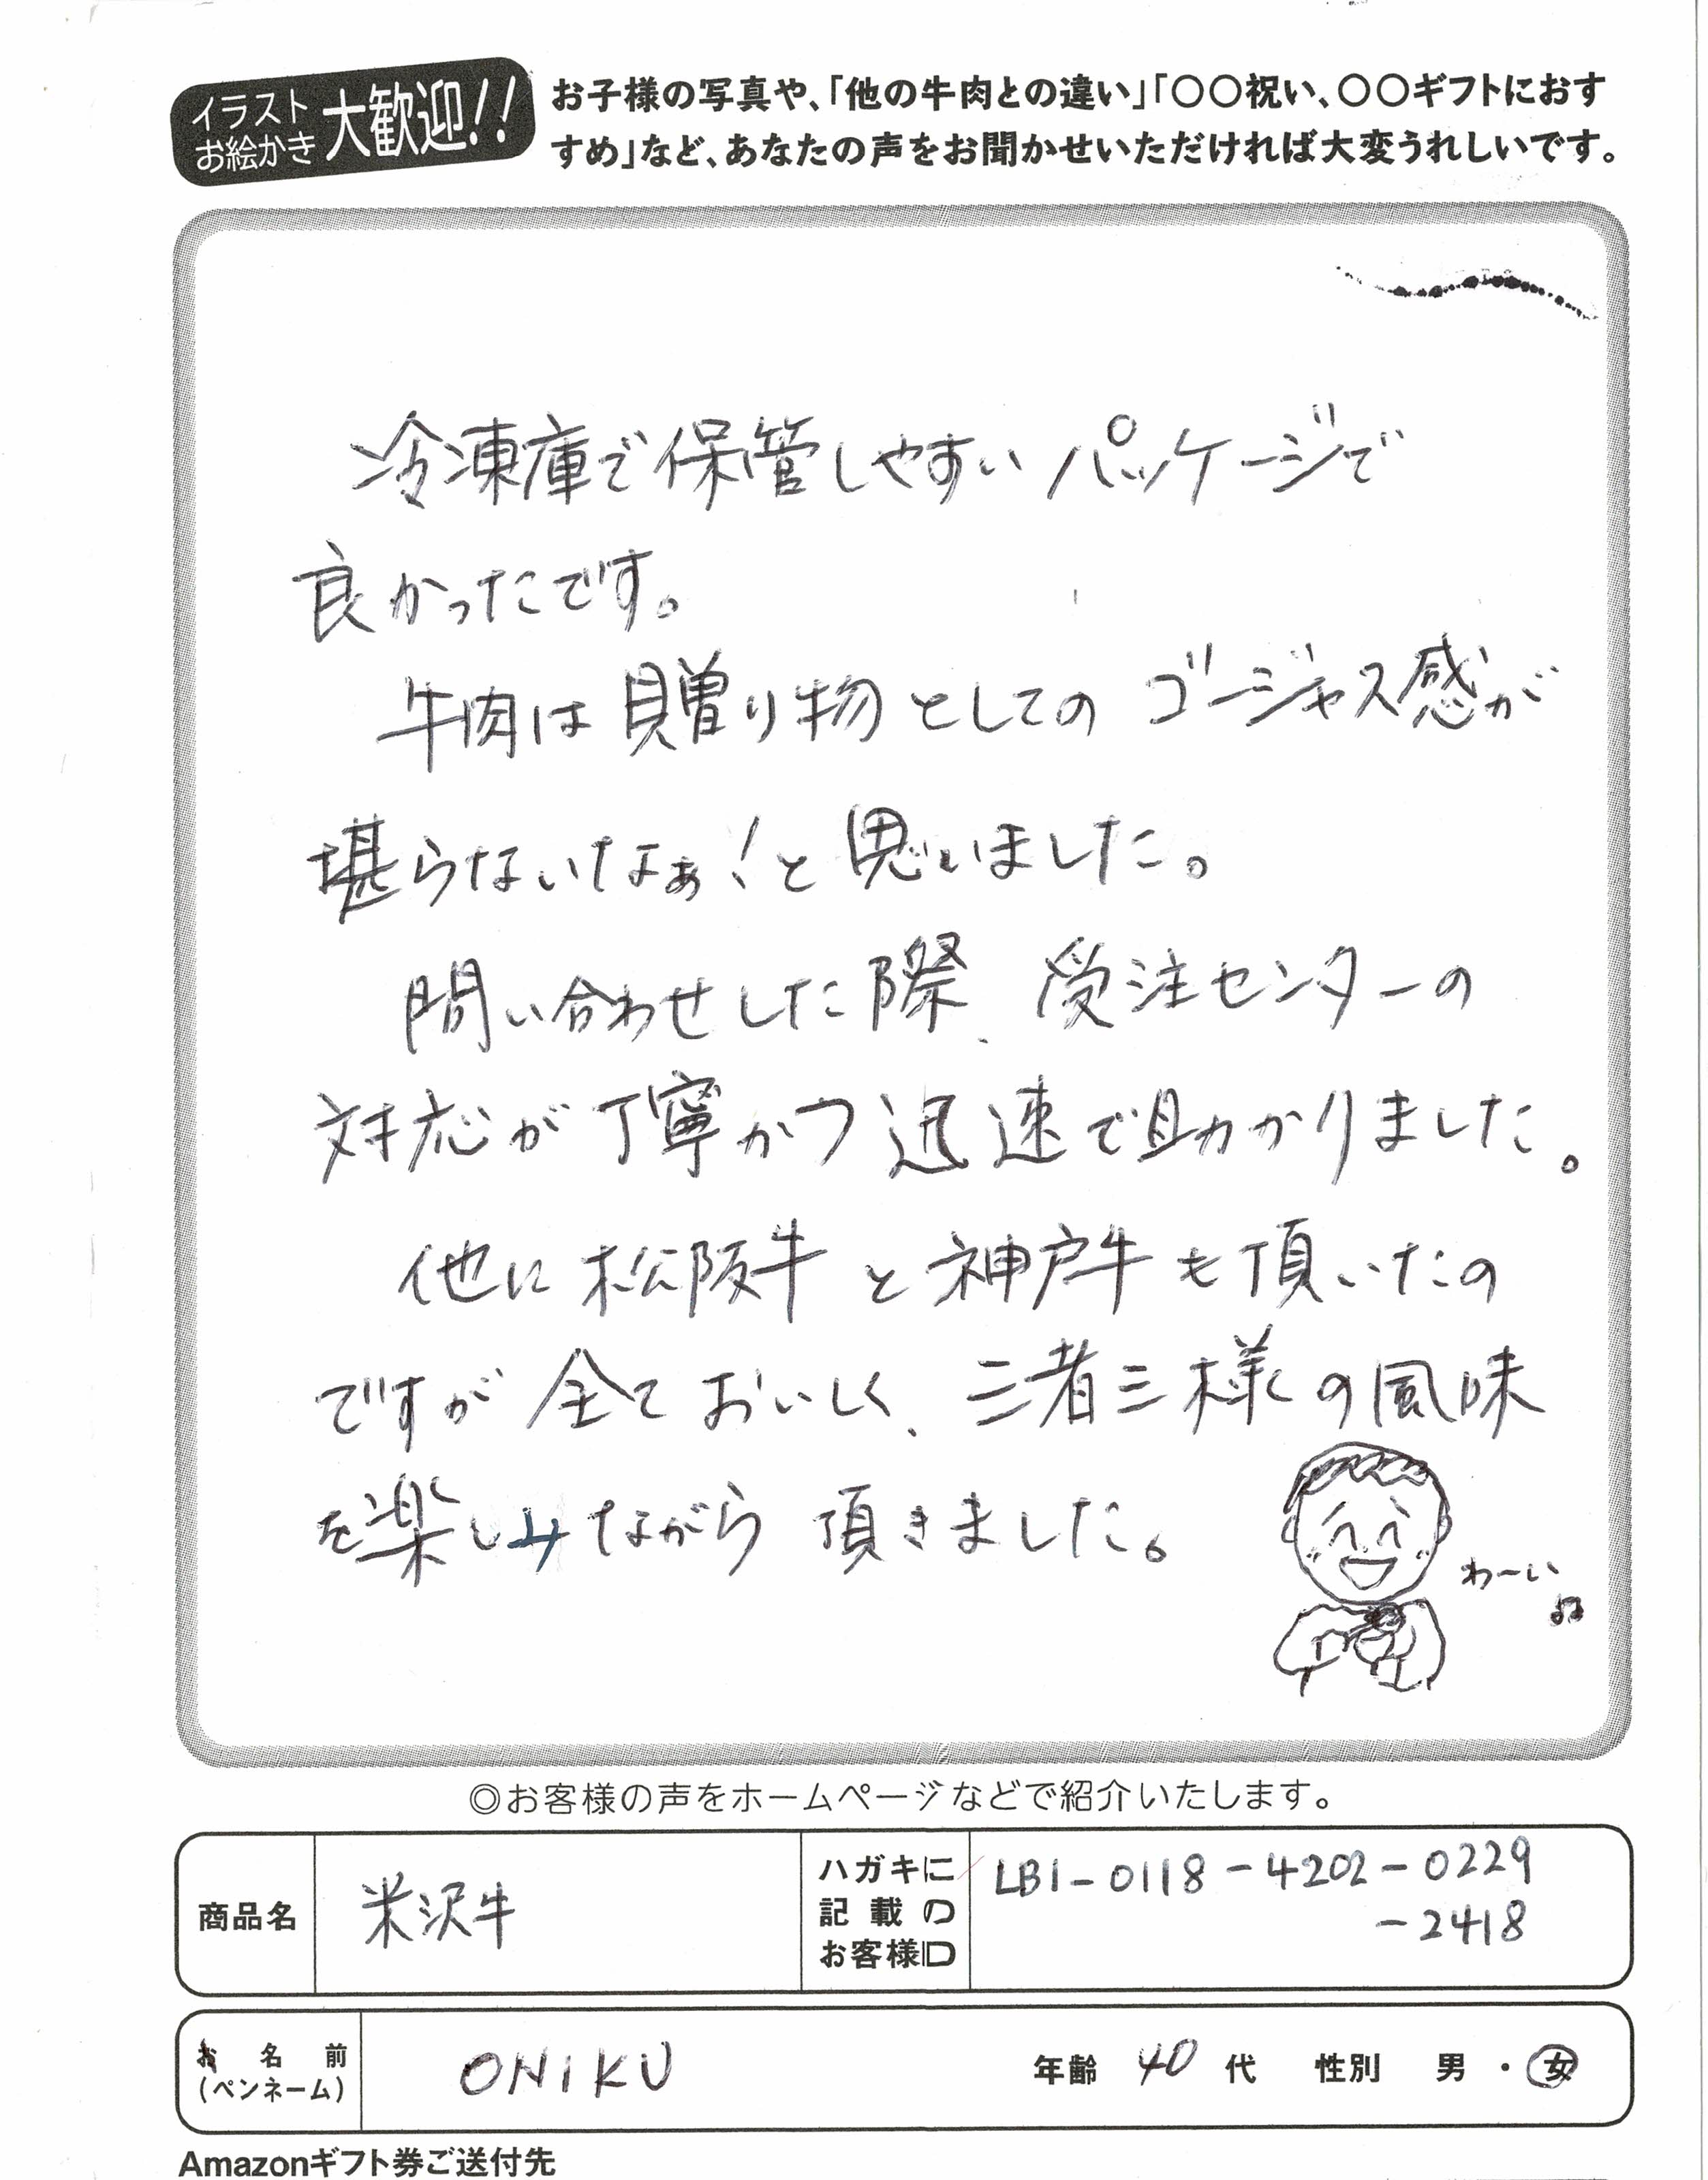 イラスト
お絵かき
大歓迎!!
お子様の写真や、「他の牛肉との違い」「〇〇祝い、〇〇ギフトにおす
すめ」など、あなたの声をお聞かせいただければ大変うれしいです。
冷凍庫で保管しやすいパッケージで
良かったです。
牛肉は贈り物としてのゴージャス感が
堪らないなぁ!と思いました。
問い合わせした際、受注センターの
対応が丁寧かつ迅速で助かりました。
他に松阪牛と神戸牛も頂いたの
ですが全ておいしく、三者三様の風味
を楽しみながら頂きました。
わーい♫
◎お客様の声をホームページなどで紹介いたします。
商品名
米沢牛
ハガキに
記載の
お客様ID
LB1-0118-4202-0229
-2418
お名前
(ペンネーム)
ONIKU
年齢 40 代 性別 男・女
Amazonギフト券ご送付先